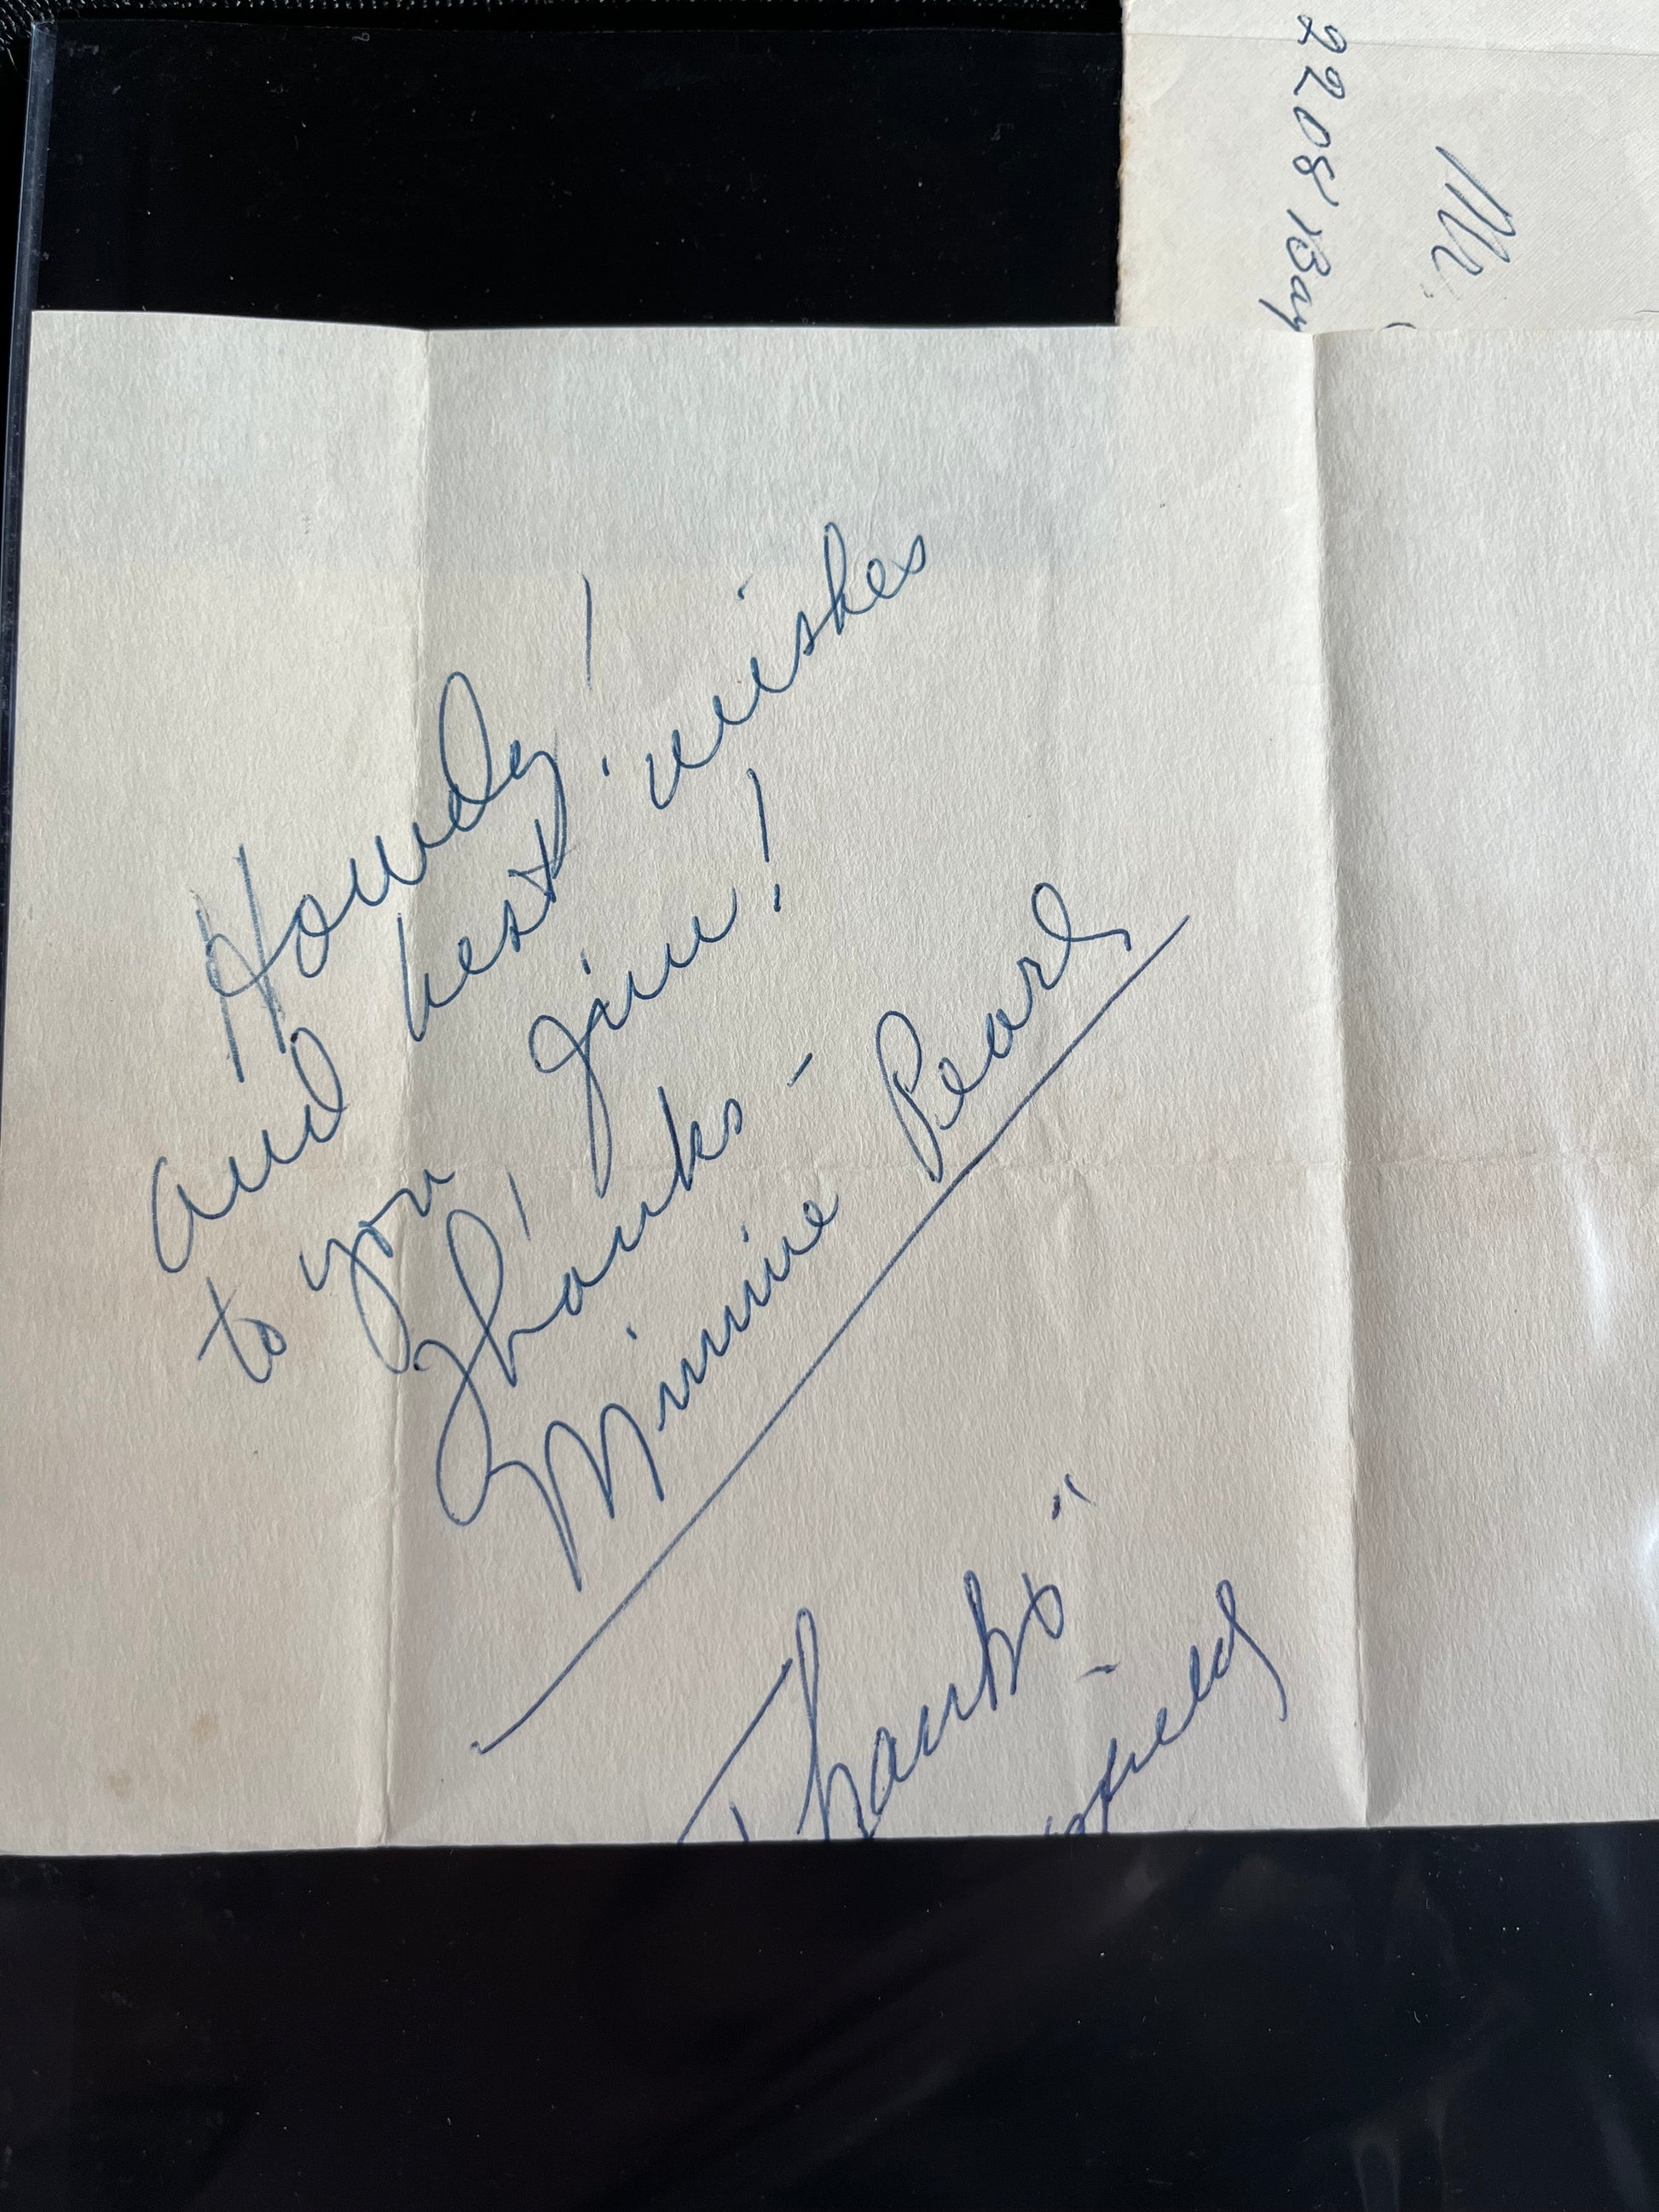 2208 Bay
Mr.
Howdy!
and best wishes
to you Jim!
Thanks -
Minnie Pearl
Thanks